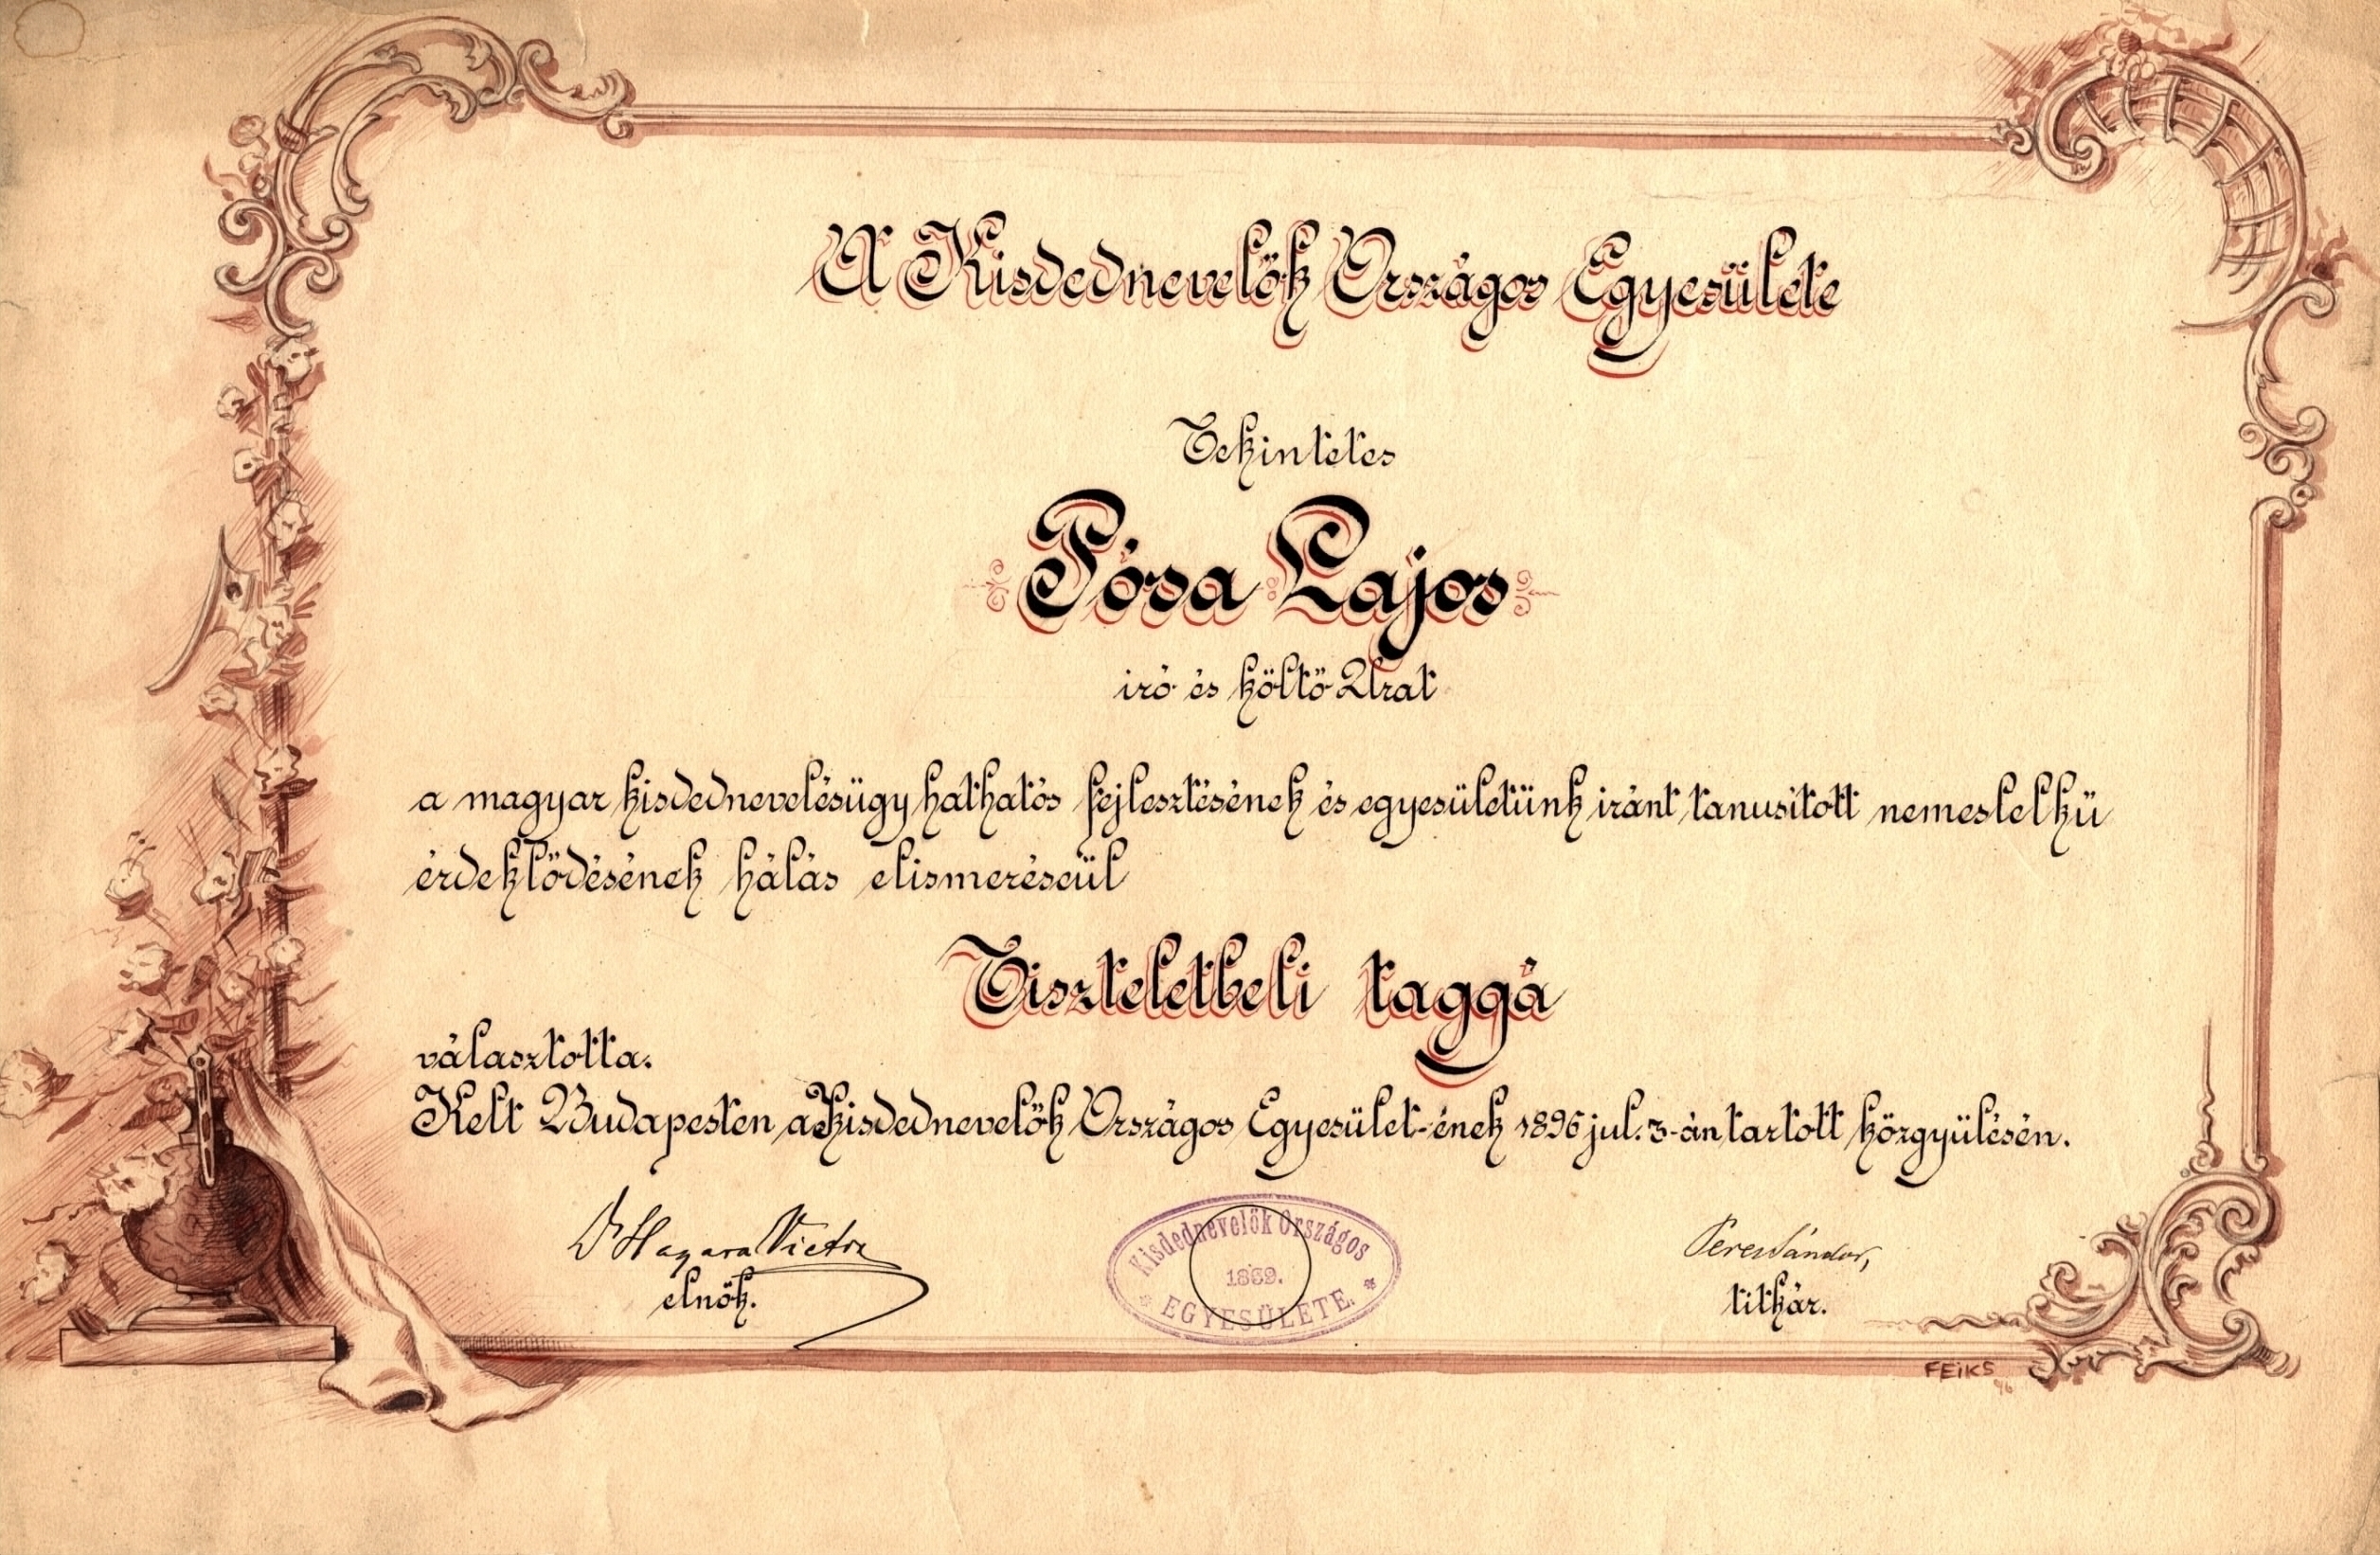 A Kisdednevelők Országos Egyesülete
Tekintetes
Pósa Lajos
iró és költő Urat
a magyar kisdednevelésügy hathatós fejlesztésének és egyesületünk iránt tanusitott nemeslelkü
érdeklődésének hálás elismeréseül
Tiszteletbeli taggá
választotta.
Kelt Budapesten a Kisdednevelők Országos Egyesület-ének 1896 jul. 3-án tartott közgyülésén.
Dr Hagara Victor
elnök.
Kisdednevelők Országos
1869.
EGYESÜLETE.
Peres Sándor,
titkár.
FEIKS
96